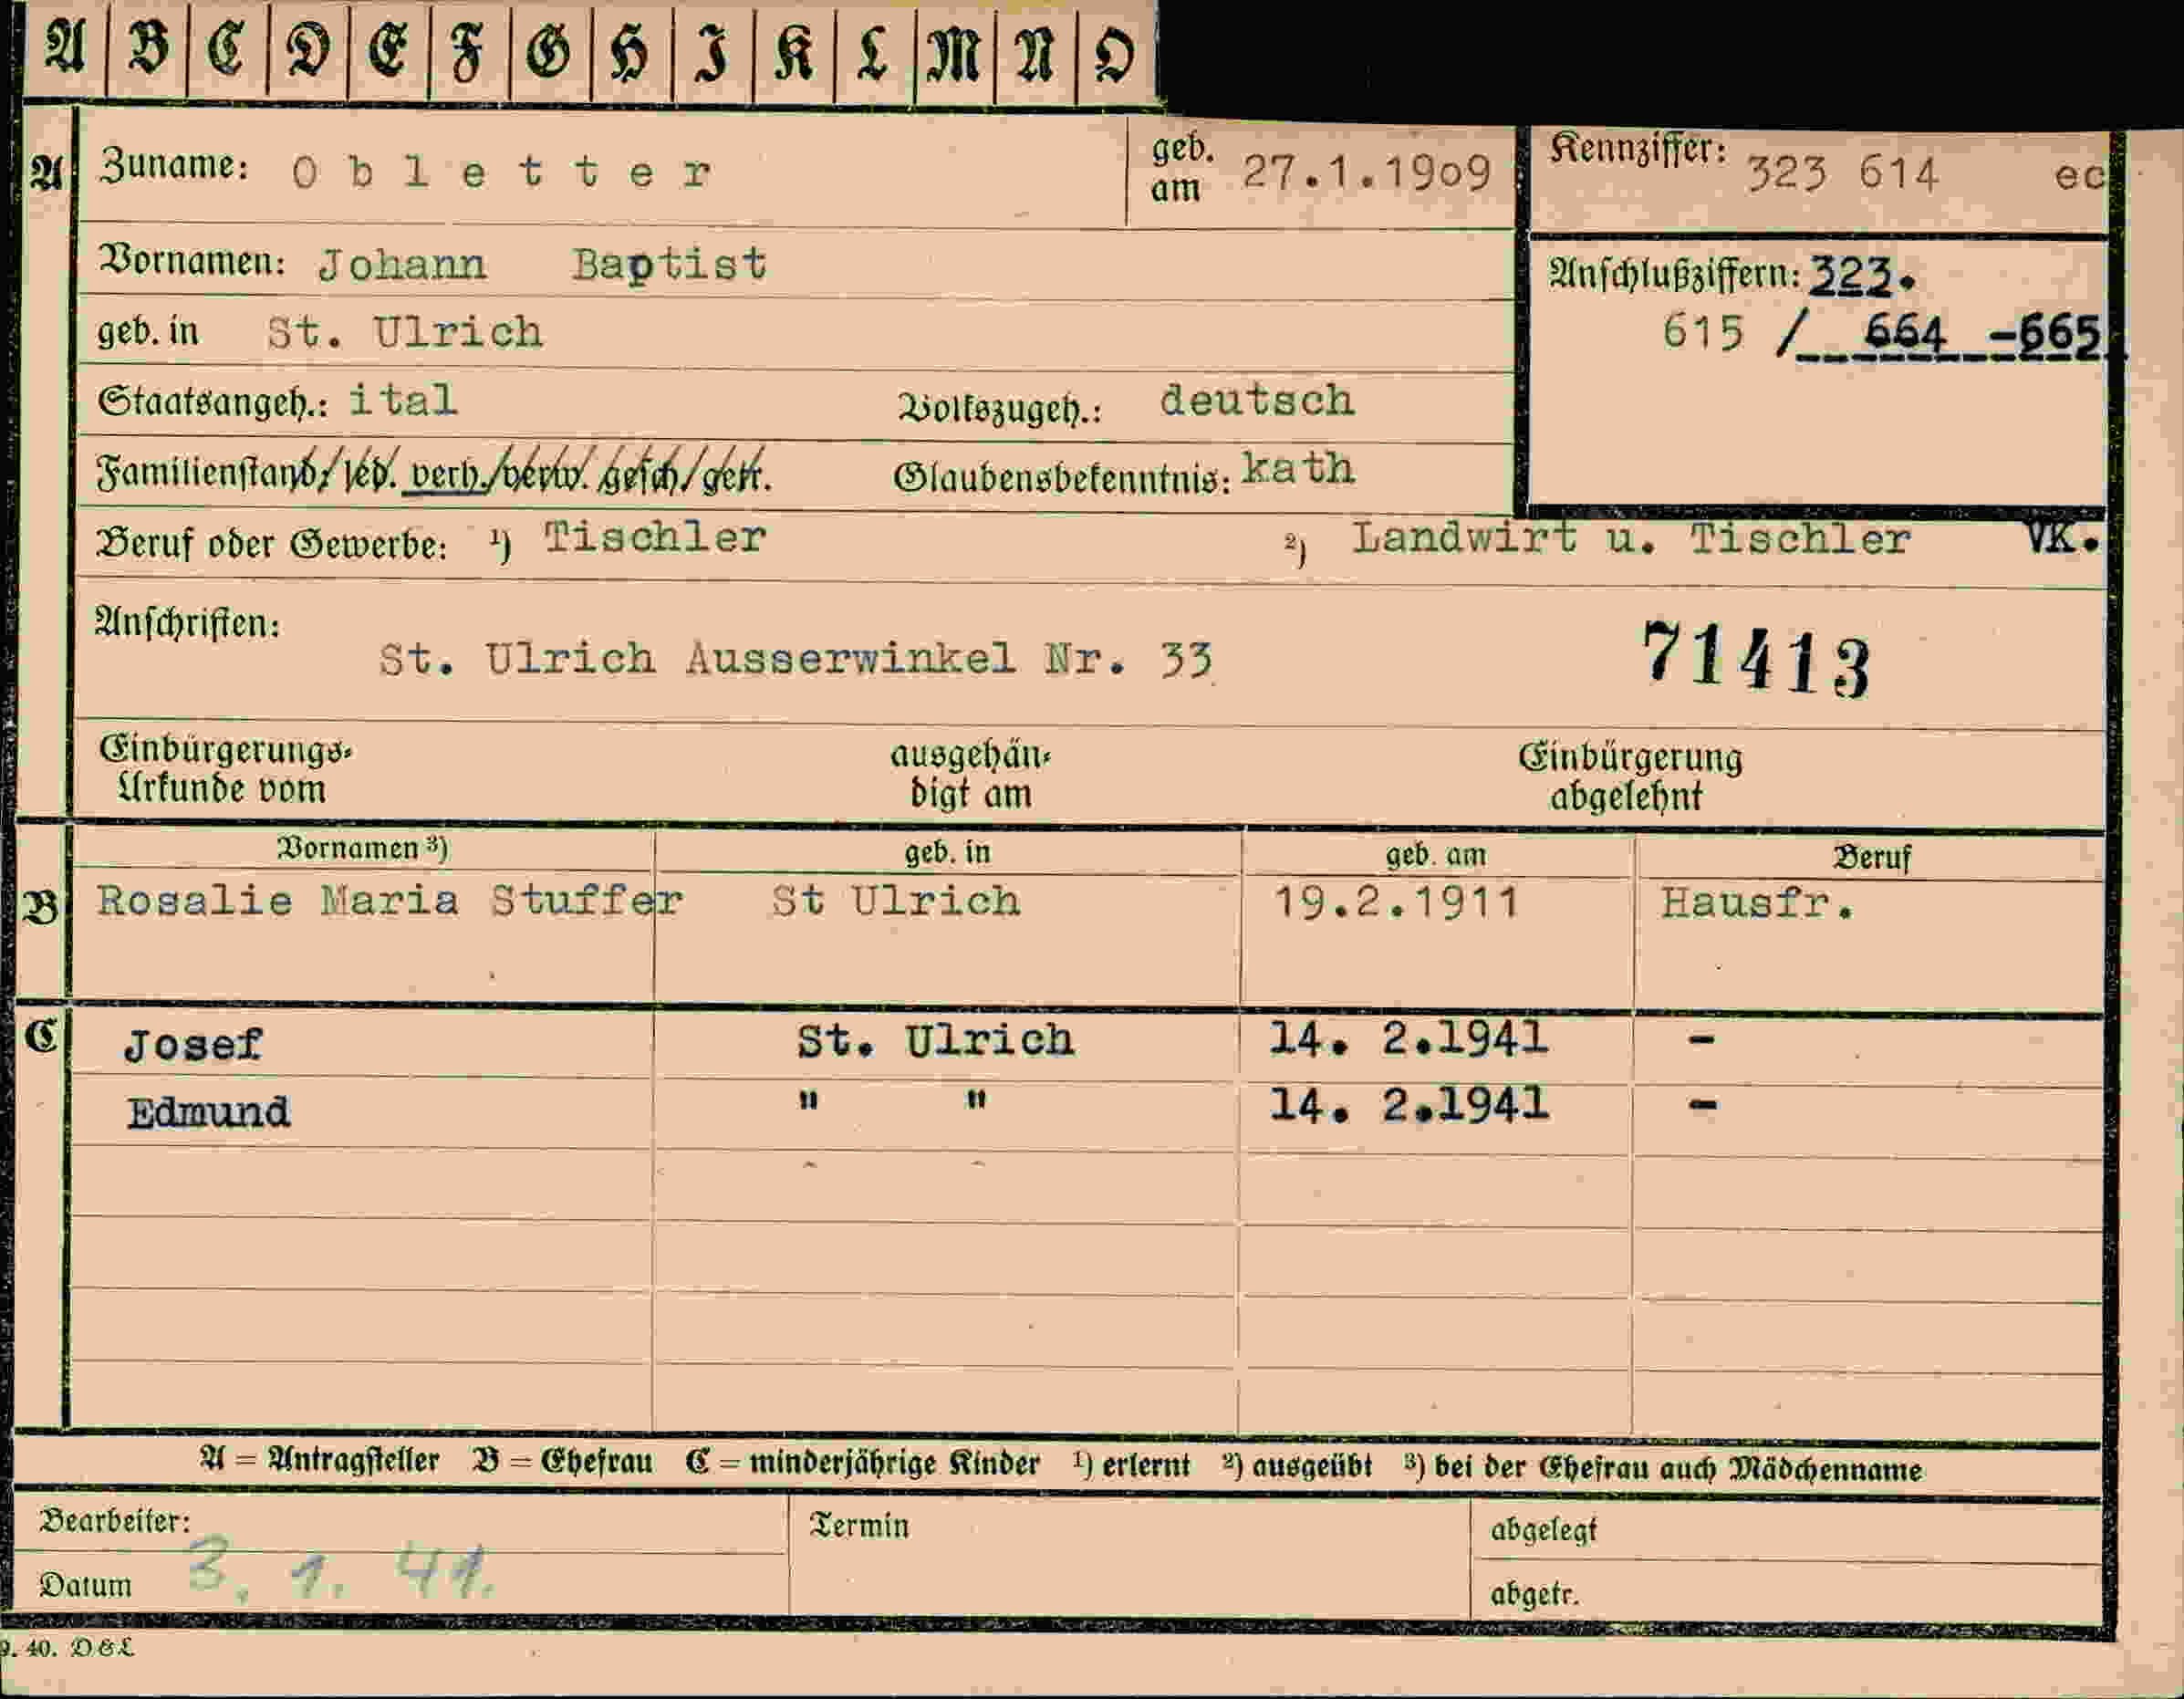 A B C D E F G H I K L M N O
A Zuname: Obletter geb. am 27.1.19o9 Kennziffer: 323 614 ec
Vornamen: Johann Baptist Anschlußziffern: 323.
615 / 664 -665
geb. in St. Ulrich
Staatsangeh.: ital Volkszugeh.: deutsch
Familienstand: led. verh./verw. gesch/getr. Glaubensbekenntnis: kath
Beruf oder Gewerbe: ¹) Tischler ²) Landwirt u. Tischler VK.
Anschriften:
St. Ulrich Ausserwinkel Nr. 33 71413
Einbürgerungs- ausgehän- Einbürgerung
Urkunde vom digt am abgelehnt
Vornamen ³) geb. in geb. am Beruf
B Rosalie Maria Stuffer St Ulrich 19.2.1911 Hausfr.
C Josef St. Ulrich 14. 2.1941 -
Edmund " " 14. 2.1941 -
A = Antragsteller B = Ehefrau C = minderjährige Kinder ¹) erlernt ²) ausgeübt ³) bei der Ehefrau auch Mädchenname
Bearbeiter: Termin abgelegt
Datum 3. 1. 41. abgetr.
9. 40. D & L